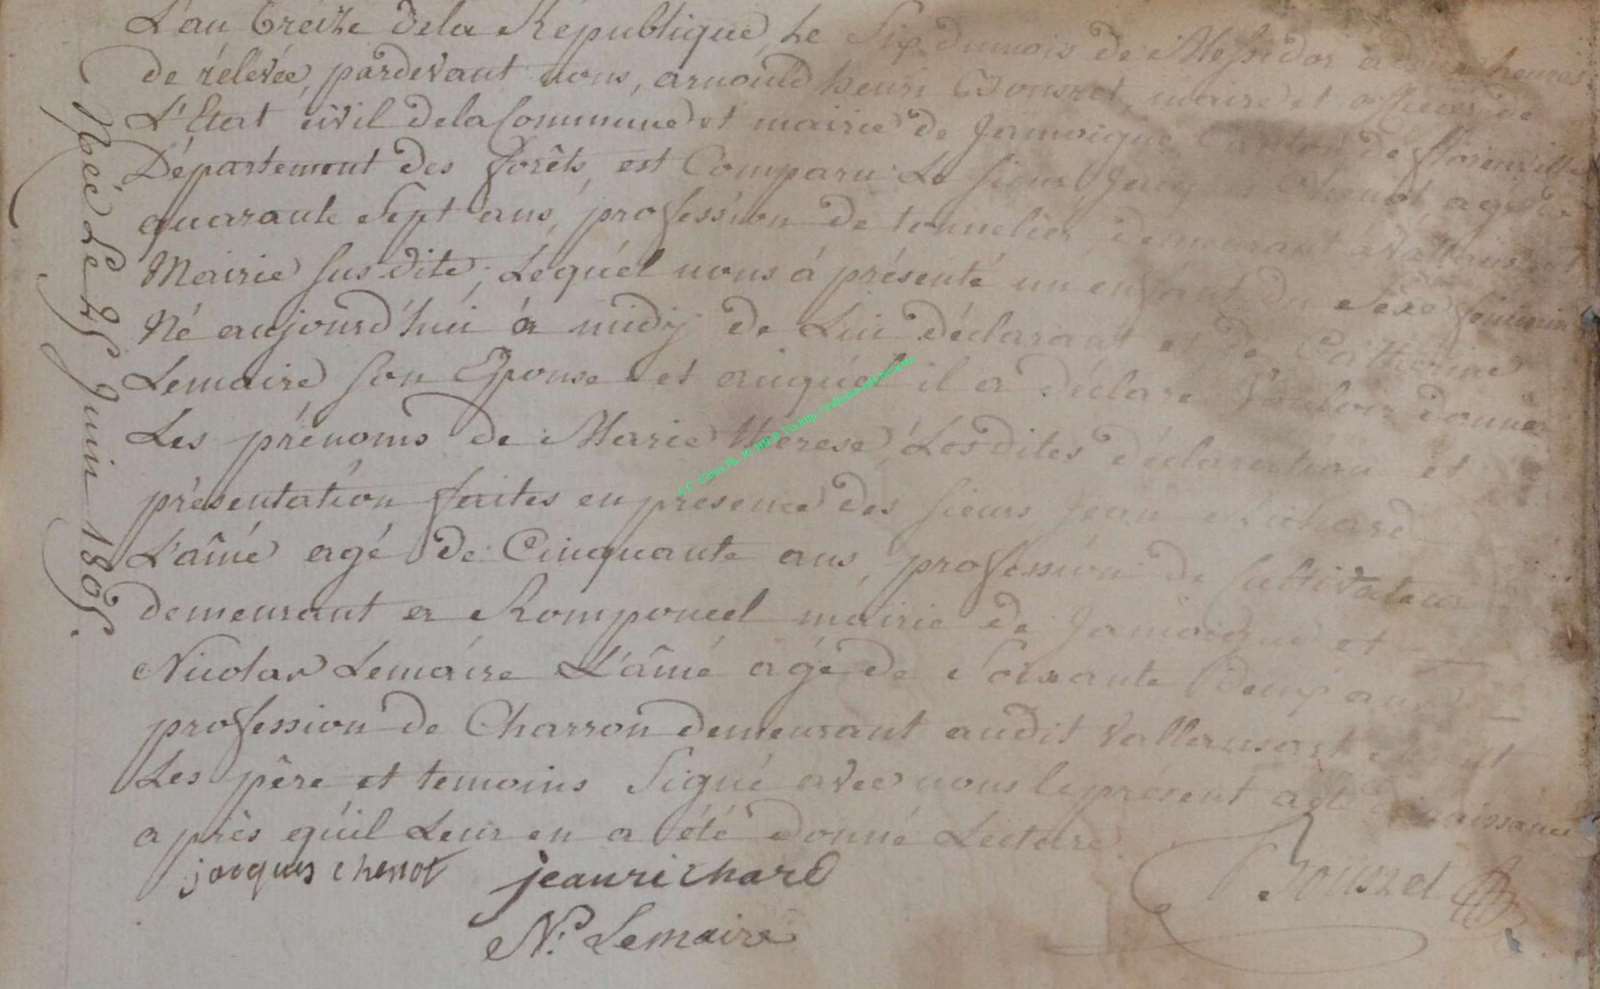 L'an treize dela République, Le Six dumois de Messidor à deux heures
de rélévée, pardevant nous, arnould henri Bouszet, maire et officier de
L'Etat civil dela Commune et mairie de Jamoigne Canton de florenville
Département des forêts, est Comparu Le Sieur Jacques Chenot agé de
quarante Sept ans, profession de tonnelier demeurant à Vallansart
Mairie Susdite, Lequel nous á présenté un enfant du Sexe féminin
Né aujourd'hui à midy de Lui déclarant et de Catherine
Lemaire Son Epouse et auquel il a déclaré Vouloir donner
Les prénoms de Marie therese, Lesdites déclaration et
présentation faites en présence des Sieurs Jean Richard
L'aîné agé de Cinquante ans, profession de Cultivateur
demeurant a Romponcel mairie de Jamoigne et
Nicolas Lemaire L'aîné âgé de Soixante Deux ans
profession de Charron demeurant audit Vallansart et ont
Les père et temoins Signé avec nous le présent acte de naissance
après qu'il Leur en a été donné Lecture.
jacques chenot jean richard Bouszet
N. Lemaire
Née Le 25 Juin 1805.